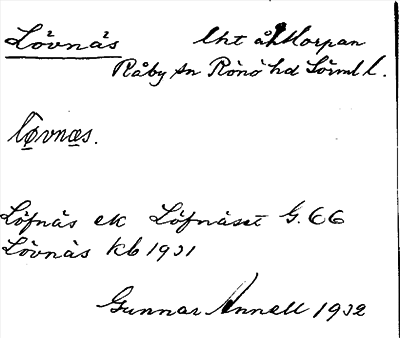 Lövnäs lht åt Morpan
Råby sn Rönö hd Sörml l.
lövnæs.
Löfnäs ek Löfnäset G. 66
Lövnäs kb 1931
Gunnar Annell 1932